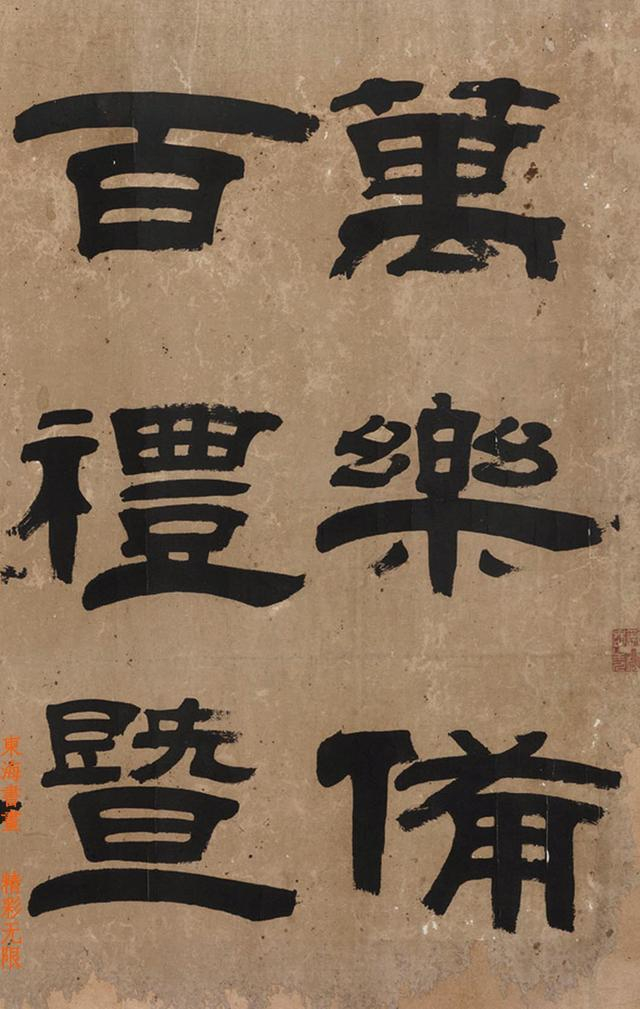 萬樂備
百禮暨
東海書畫 精彩无限